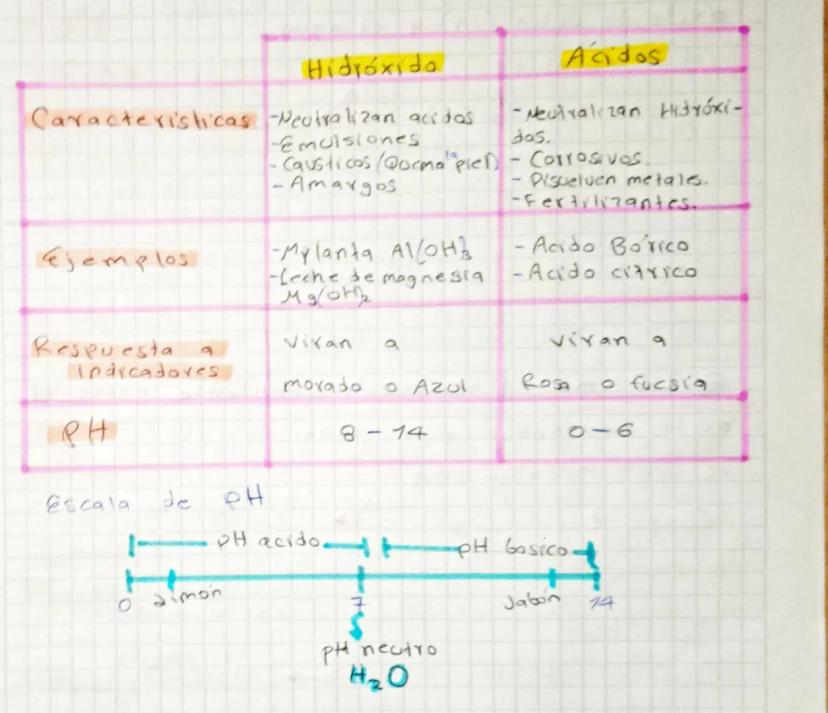 Hidróxido Ácidos
Caracteristicas
-Neutralizan acidos
-Emulsiones
-Causticos (Quema la piel)
-Amargos
-Neutralizan Hidróxi-
dos.
-Corrosivos.
-Disuelven metales.
-Fertilizantes.
Ejemplos
-Mylanta Al(OH)3
-Leche de magnesia
Mg(OH)2
-Acido Bórico
-Acido citrico
Respuesta a
Indicadores
Viran a
morado o Azul
Viran a
Rosa o fucsia
PH 8 - 14 0 - 6
Escala de PH
pH acido pH basico
0 Limón 7 Jabón 14
pH neutro
H2O